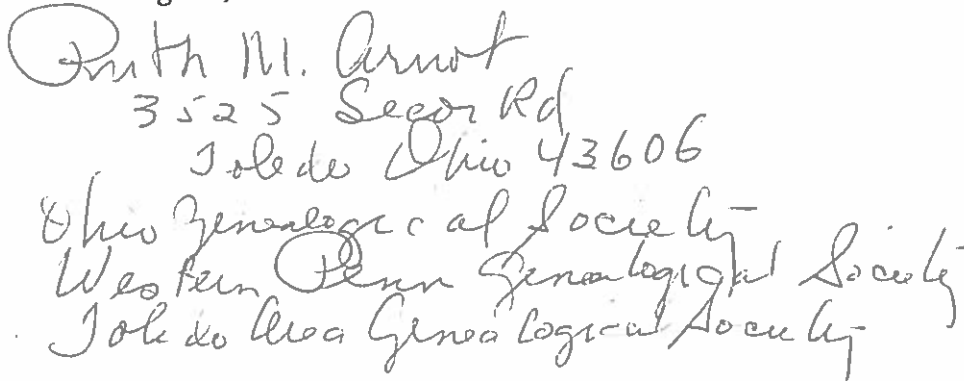 Ruth M. Arnot
3525 Secor Rd
Toledo Ohio 43606
Ohio Genealogical Society
Western Penn Genealogical Society
Toledo Area Genealogical Society